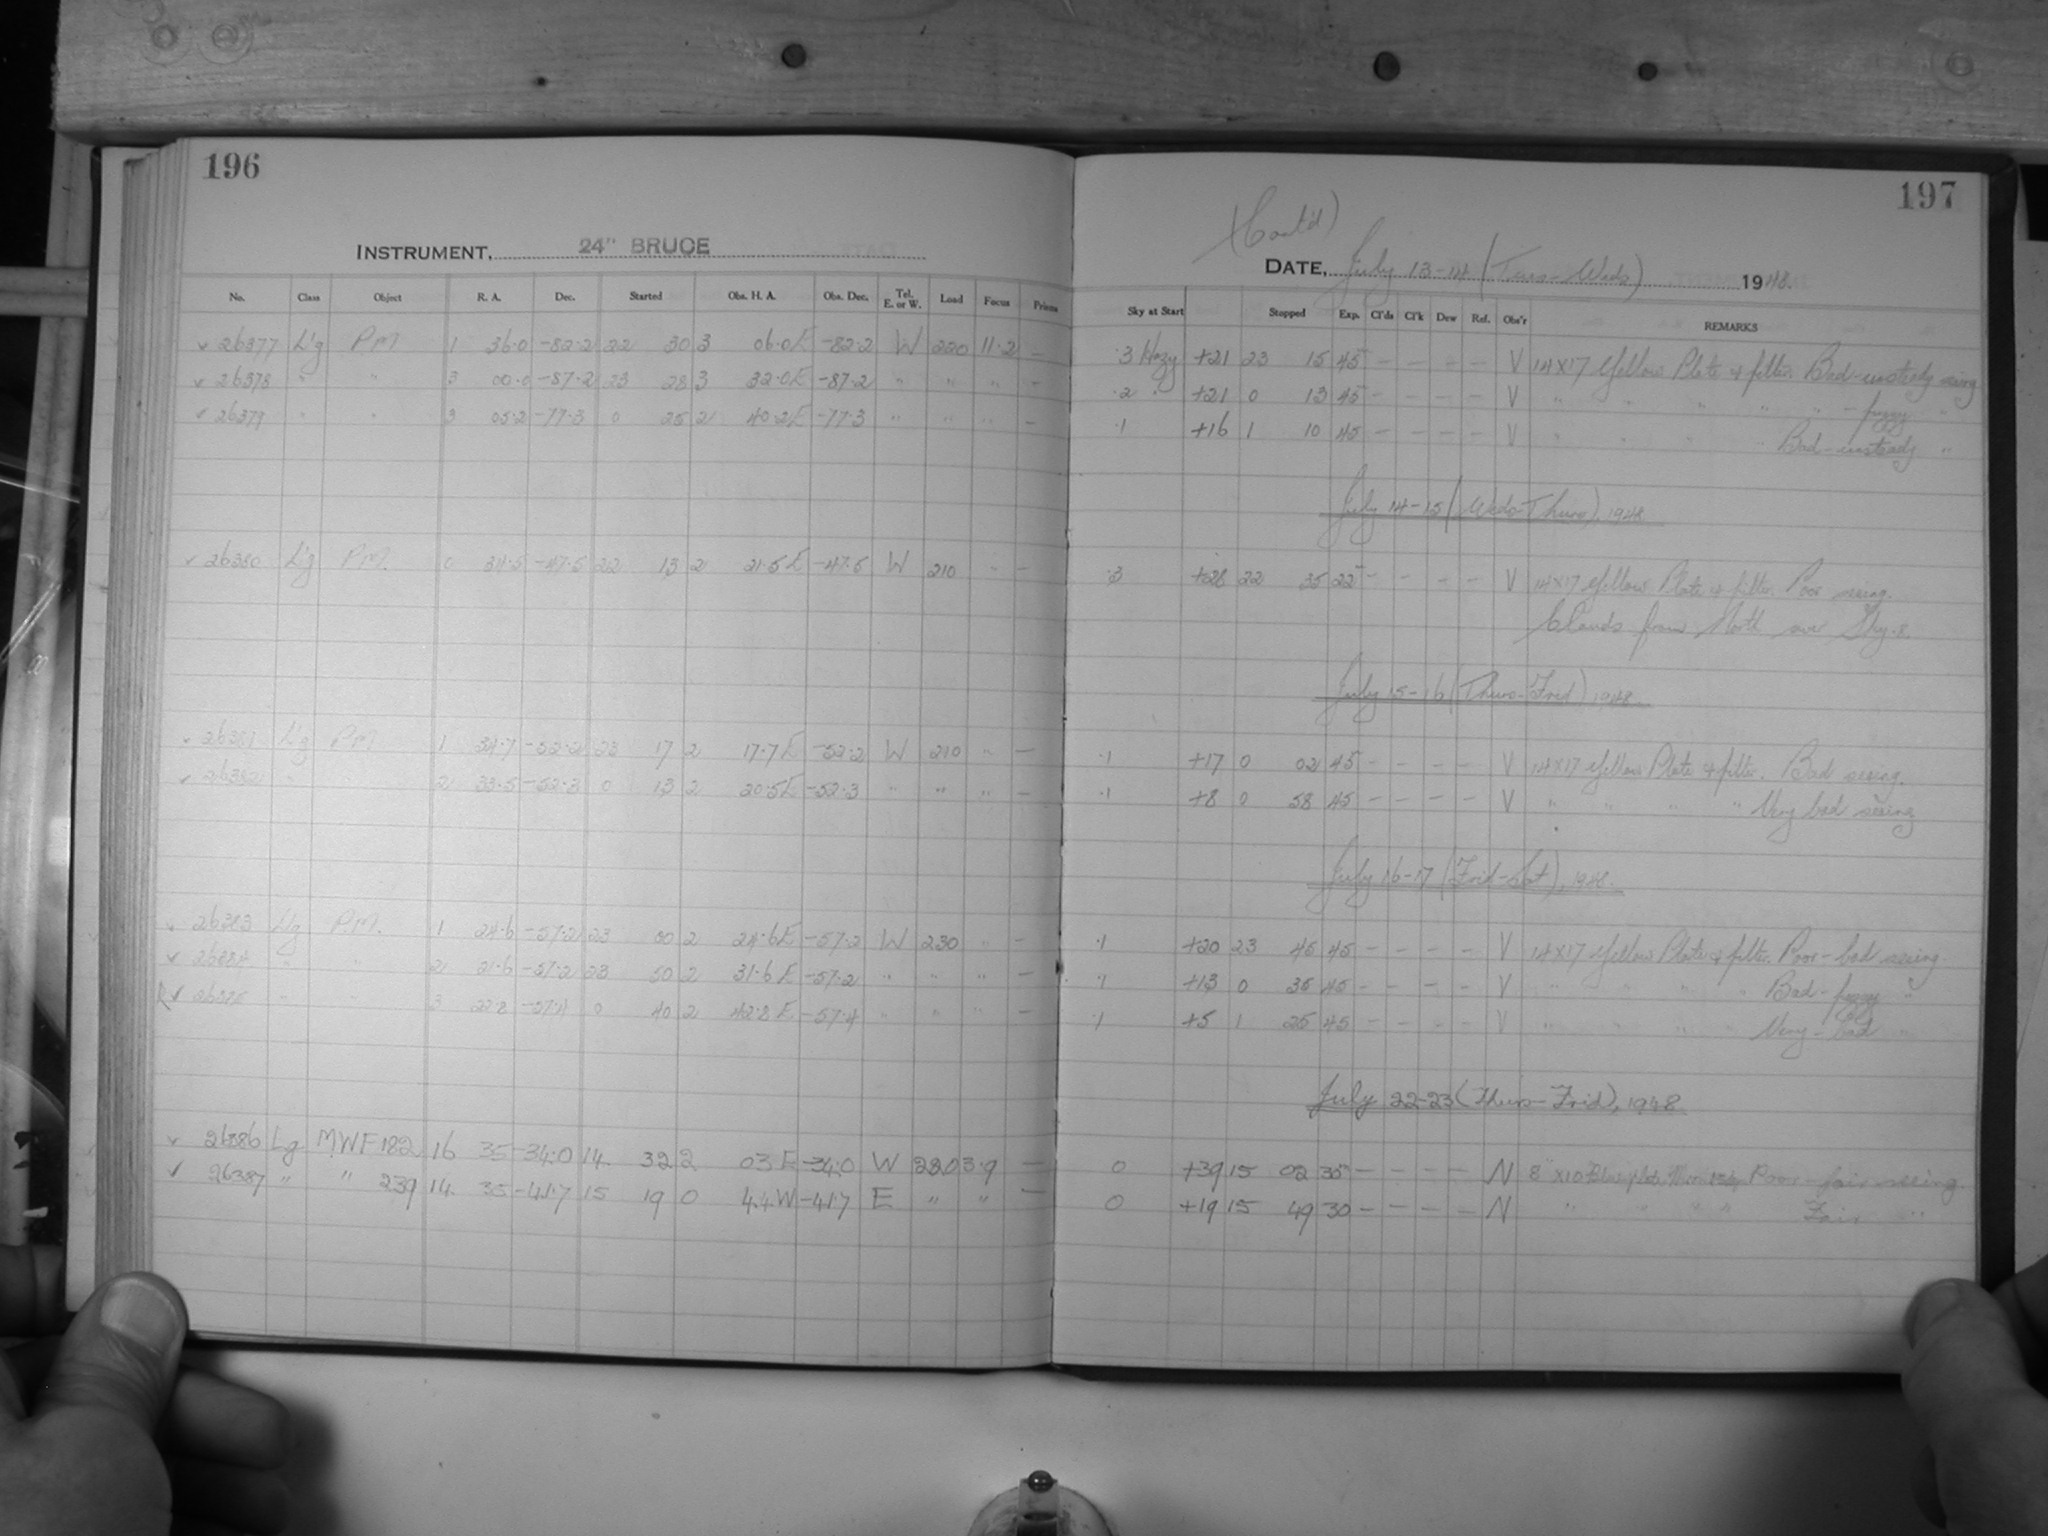 196
INSTRUMENT, 24" BRUCE
No. Class Object R. A. Dec. Started Obs. H. A. Obs. Dec. Tel. E. or W. Load Focus Prisms
✓ 26377 L'g PM 1 36.0 -82.2 22 30 3 06.0E -82.2 W 220 11.2 —
✓ 26378 " " 3 00.0 -87.2 23 28 3 32.0E -87.2 " " " —
✓ 26379 " " 3 05.2 -77.3 0 25 2 40.2E -77.3 " " " —
✓ 26380 L'g PM. 0 34.5 -47.5 22 13 2 21.5E -47.5 W 210 " —
✓ 26381 L'g PM 1 34.7 -52.2 23 17 2 17.7E -52.2 W 210 " —
✓ 26382 " " 2 33.5 -52.3 0 13 2 20.5E -52.3 " " " —
✓ 26383 L'g PM. 1 24.6 -57.2 23 00 2 24.6E -57.2 W 230 " —
✓ 26384 " " 2 21.6 -57.2 23 50 2 31.6E -57.2 " " " —
✓ 26385 " " 3 22.8 -57.4 0 40 2 42.8E -57.4 " " " —
✓ 26386 Lg MWF 182 16 35 -34.0 14 32 2 03E -34.0 W 280 3.9 —
✓ 26387 " " 239 14 35 -41.7 15 19 0 44W -41.7 E " " —
197
(Cont'd)
DATE, July 13-14 (Tues-Weds) 1948.
Sky at Start Stopped Exp. Cl'ds Cl'k Dew Ref. Obs'r REMARKS
.3 Hazy +21 23 15 45 — — — — V 14x17 Yellow Plate & filter. Bad-unsteady seeing
.2 " +21 0 13 45 — — — — V " " " " " - fuzzy "
.1 +16 1 10 45 — — — — V " " " " Bad-unsteady "
July 14-15 (Weds-Thurs), 1948
.3 +28 22 35 22 — — — — V 14x17 Yellow Plate & filter. Poor seeing.
Clouds from North over Sky.
July 15-16 (Thurs-Frid) 1948.
.1 +17 0 02 45 — — — — V 14x17 Yellow Plate & filter. Bad seeing.
.1 +8 0 58 45 — — — — V " " " " Very bad seeing
July 16-17 (Frid-Sat), 1948.
.1 +20 23 45 45 — — — — V 14x17 Yellow Plate & filter. Poor-bad seeing.
.1 +13 0 35 45 — — — — V " " " " Bad-fuzzy "
.1 +5 1 25 45 — — — — V " " " " Very-bad "
July 22-23 (Thurs-Frid), 1948
0 +39 15 02 35 — — — — N 8 x10 Blue plate Poor-fair seeing.
0 +19 15 49 30 — — — — N " " " " Fair "